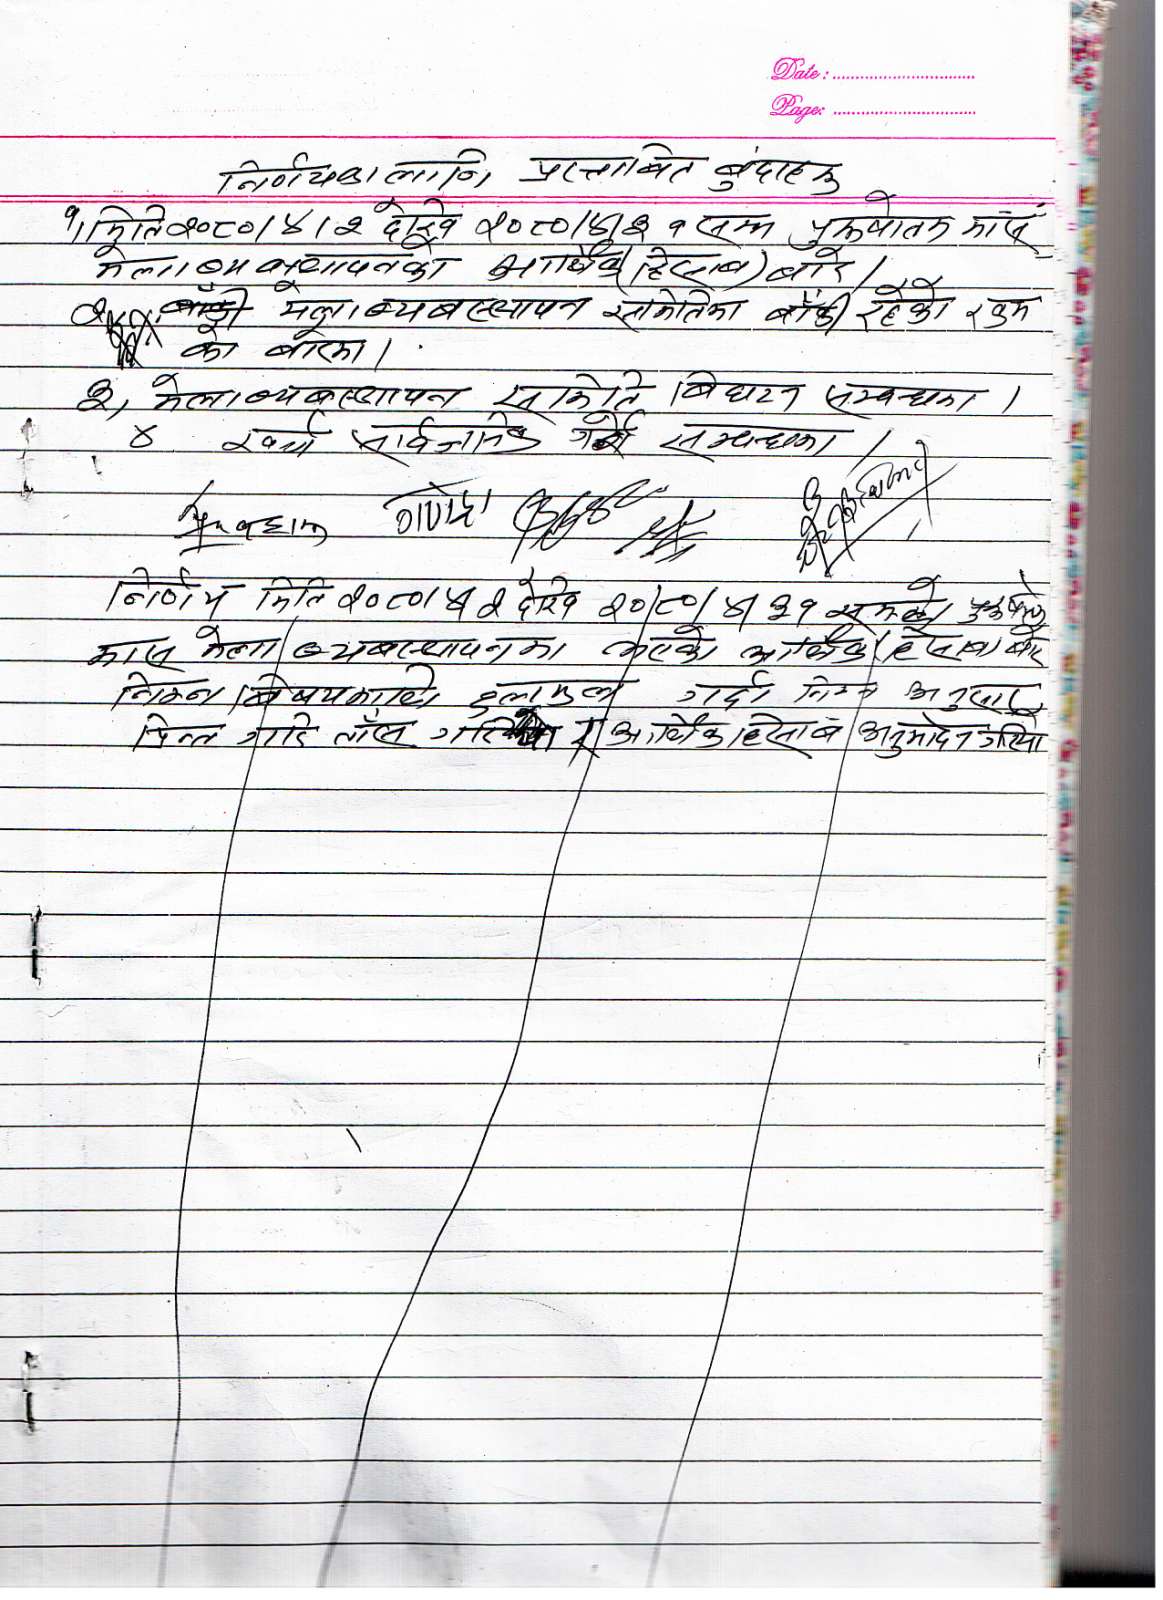 Date : ..............................
Page: ..............................
निर्णयका लागि प्रस्तावित बुंदाहरु
१, मिति २०८०/४/२ देखि २०८०/४/३१ सम्म पुरुषोतम मास
मेला व्यवस्थापनको आर्थिक (हिसाब) बारे ।
२, मेला व्यवस्थापन समितिमा बाँकी रहेको रकम
को बारेमा ।
३, मेला व्यवस्थापन समिति बिघटन सम्बन्धमा ।
४ खर्च सार्वजनिक गर्ने सम्बन्धमा ।
निर्णय मिति २०८०/४/२ देखि २०८०/४/३१ सम्मको पुरुषोतम
मास मेला व्यवस्थापनमा भएको आर्थिक हिसाब बारे
निम्न बिषयमाथि छलफल गर्दा निम्न अनुसार
आर्थिक हिसाब अनुमोदन गरियो